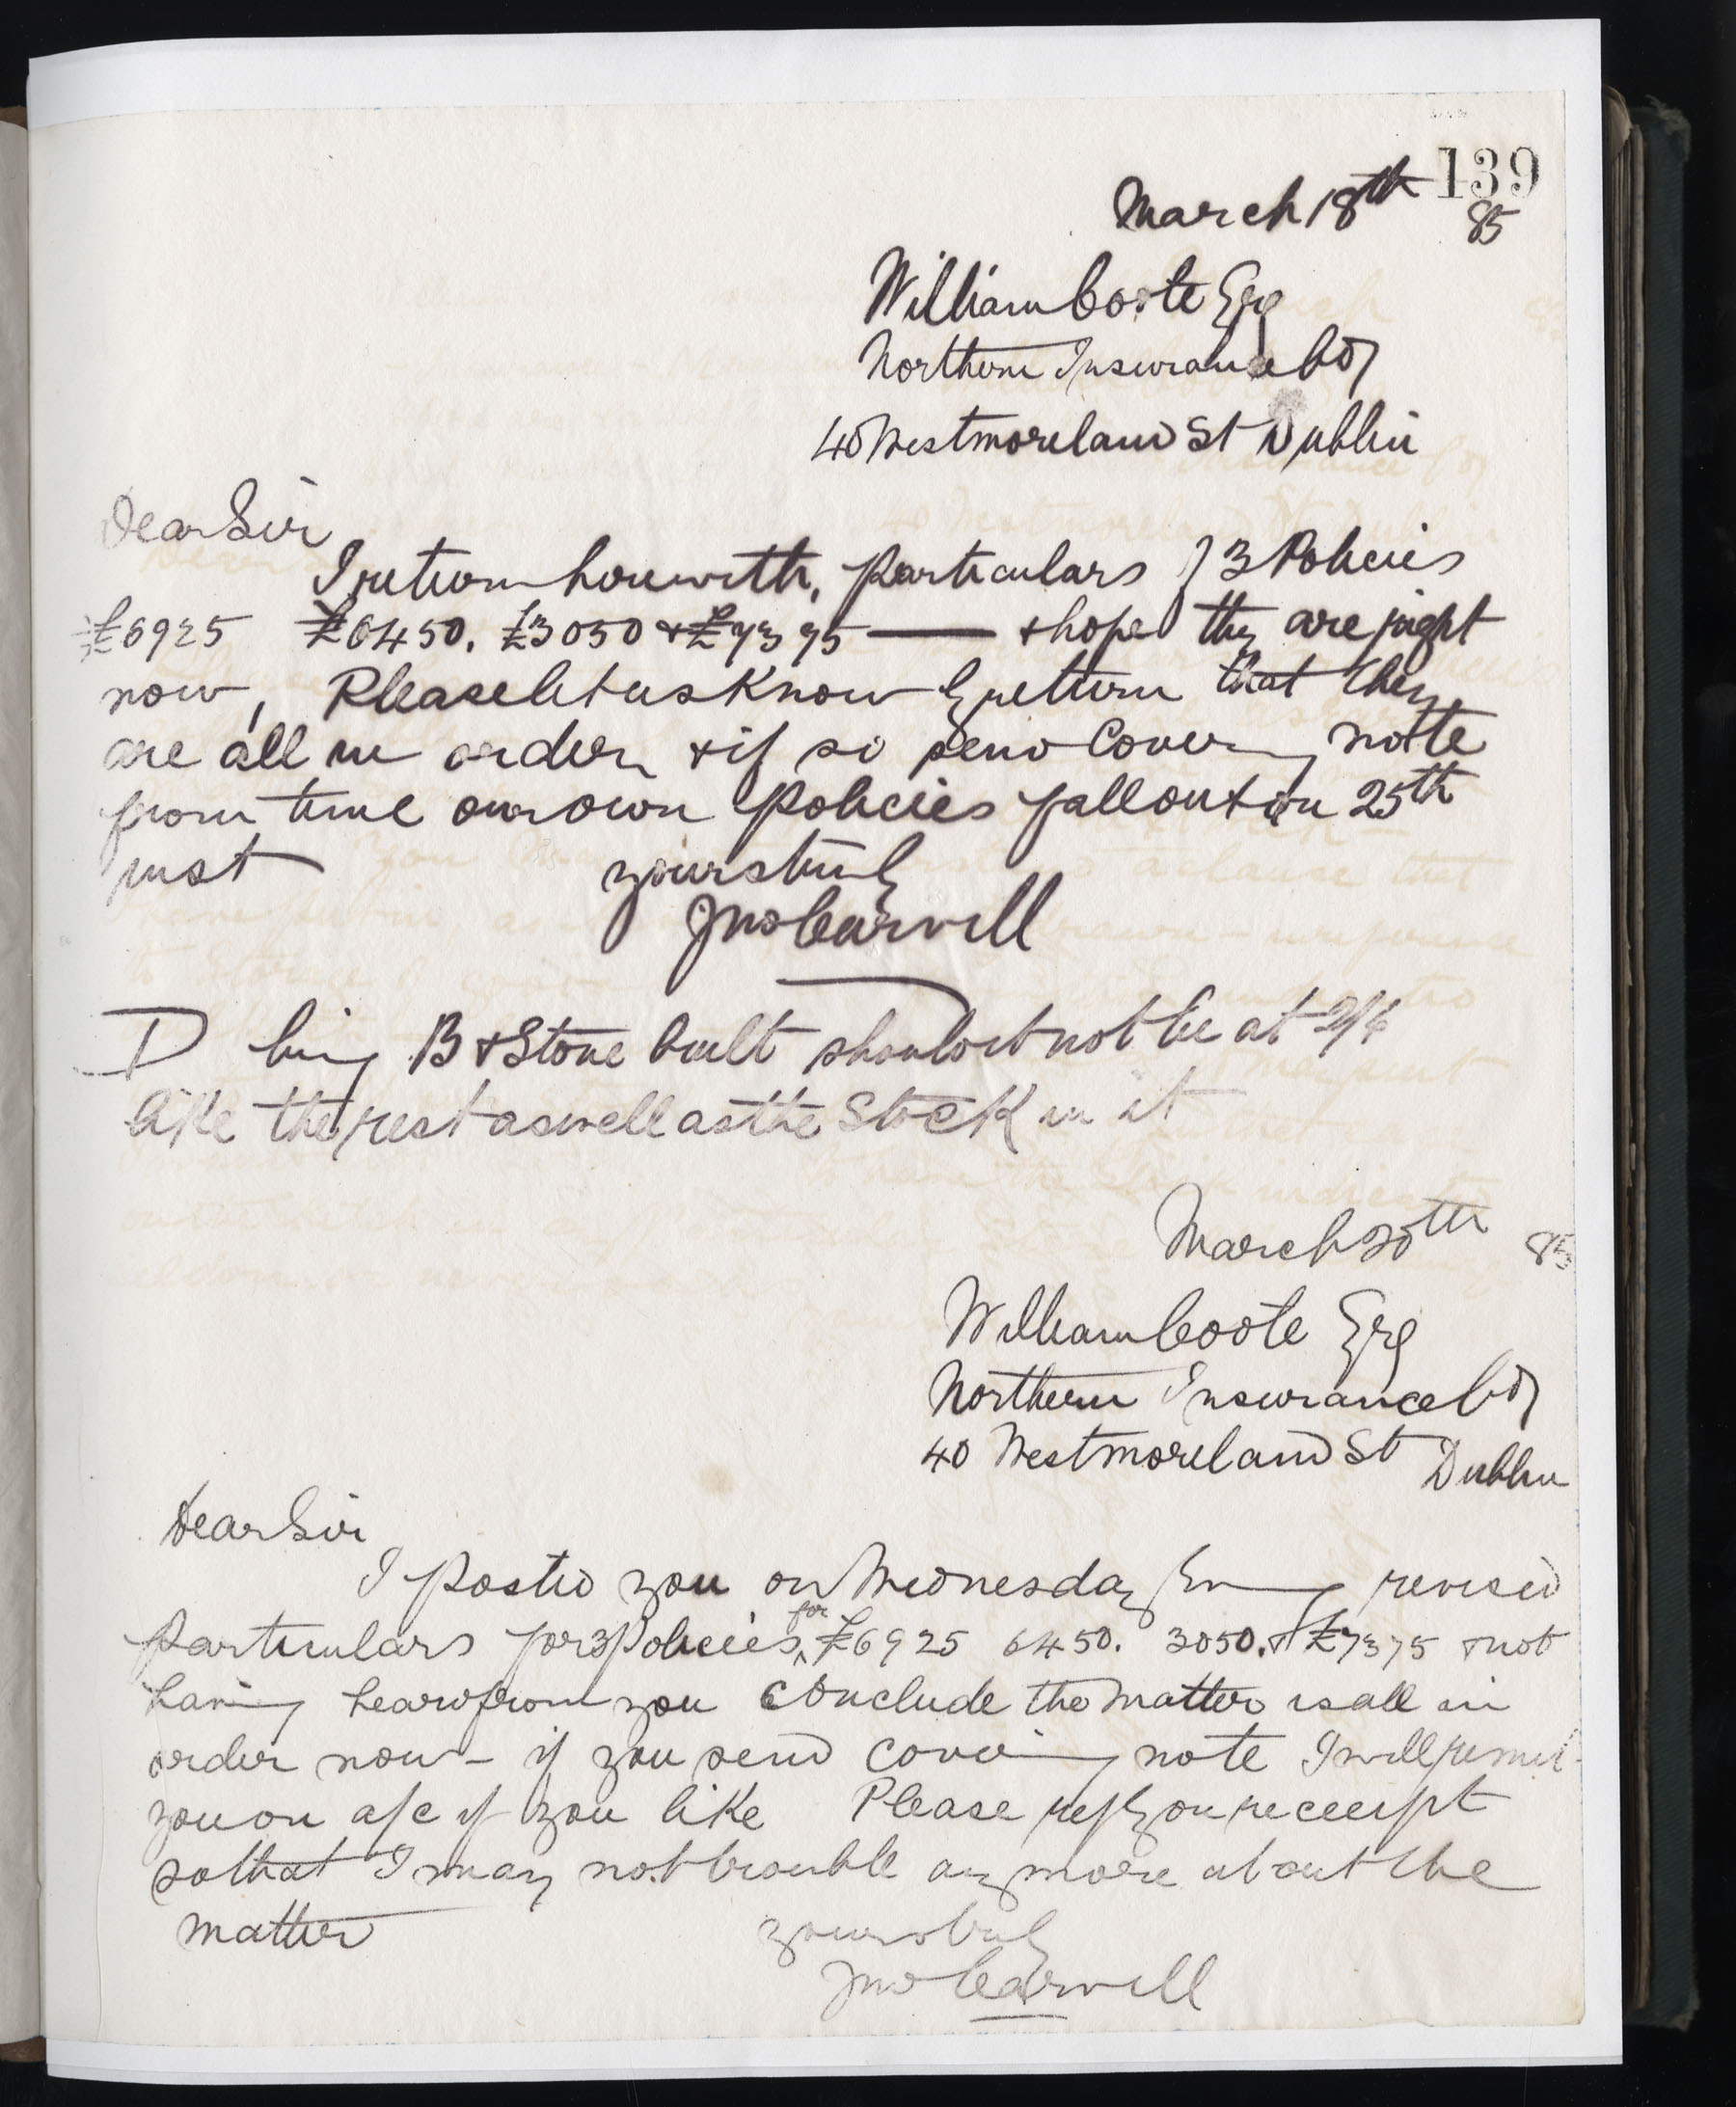 139
March 18th 85
William Coote Esq
Northern Insurance Coy
40 Westmoreland St Dublin
Dear Sir
I return herewith, particulars of 3 Policies
£6925 £6450. £3050 & £7375 — & hope they are right
now, Please let us know by return that they
are all in order & if so send Covering note
from time our own policies fall out on 25th
inst yours truly
Jno Carvill
D being B & Stone built should it not be at 2/6
like the rest as well as the Stock in it
March 20th 85
William Coote Esq
Northern Insurance Coy
40 Westmoreland St Dublin
Dear Sir
I posted you on Wednesday Evening revised
particulars for 3 Policies for £6925 6450. 3050. & £7375 & not
having heard from you conclude the matter is all in
order now - if you send covering note I will remit
you on a/c if you like Please reply on receipt
so that I may not trouble any more about the
matter yours truly
Jno Carvill